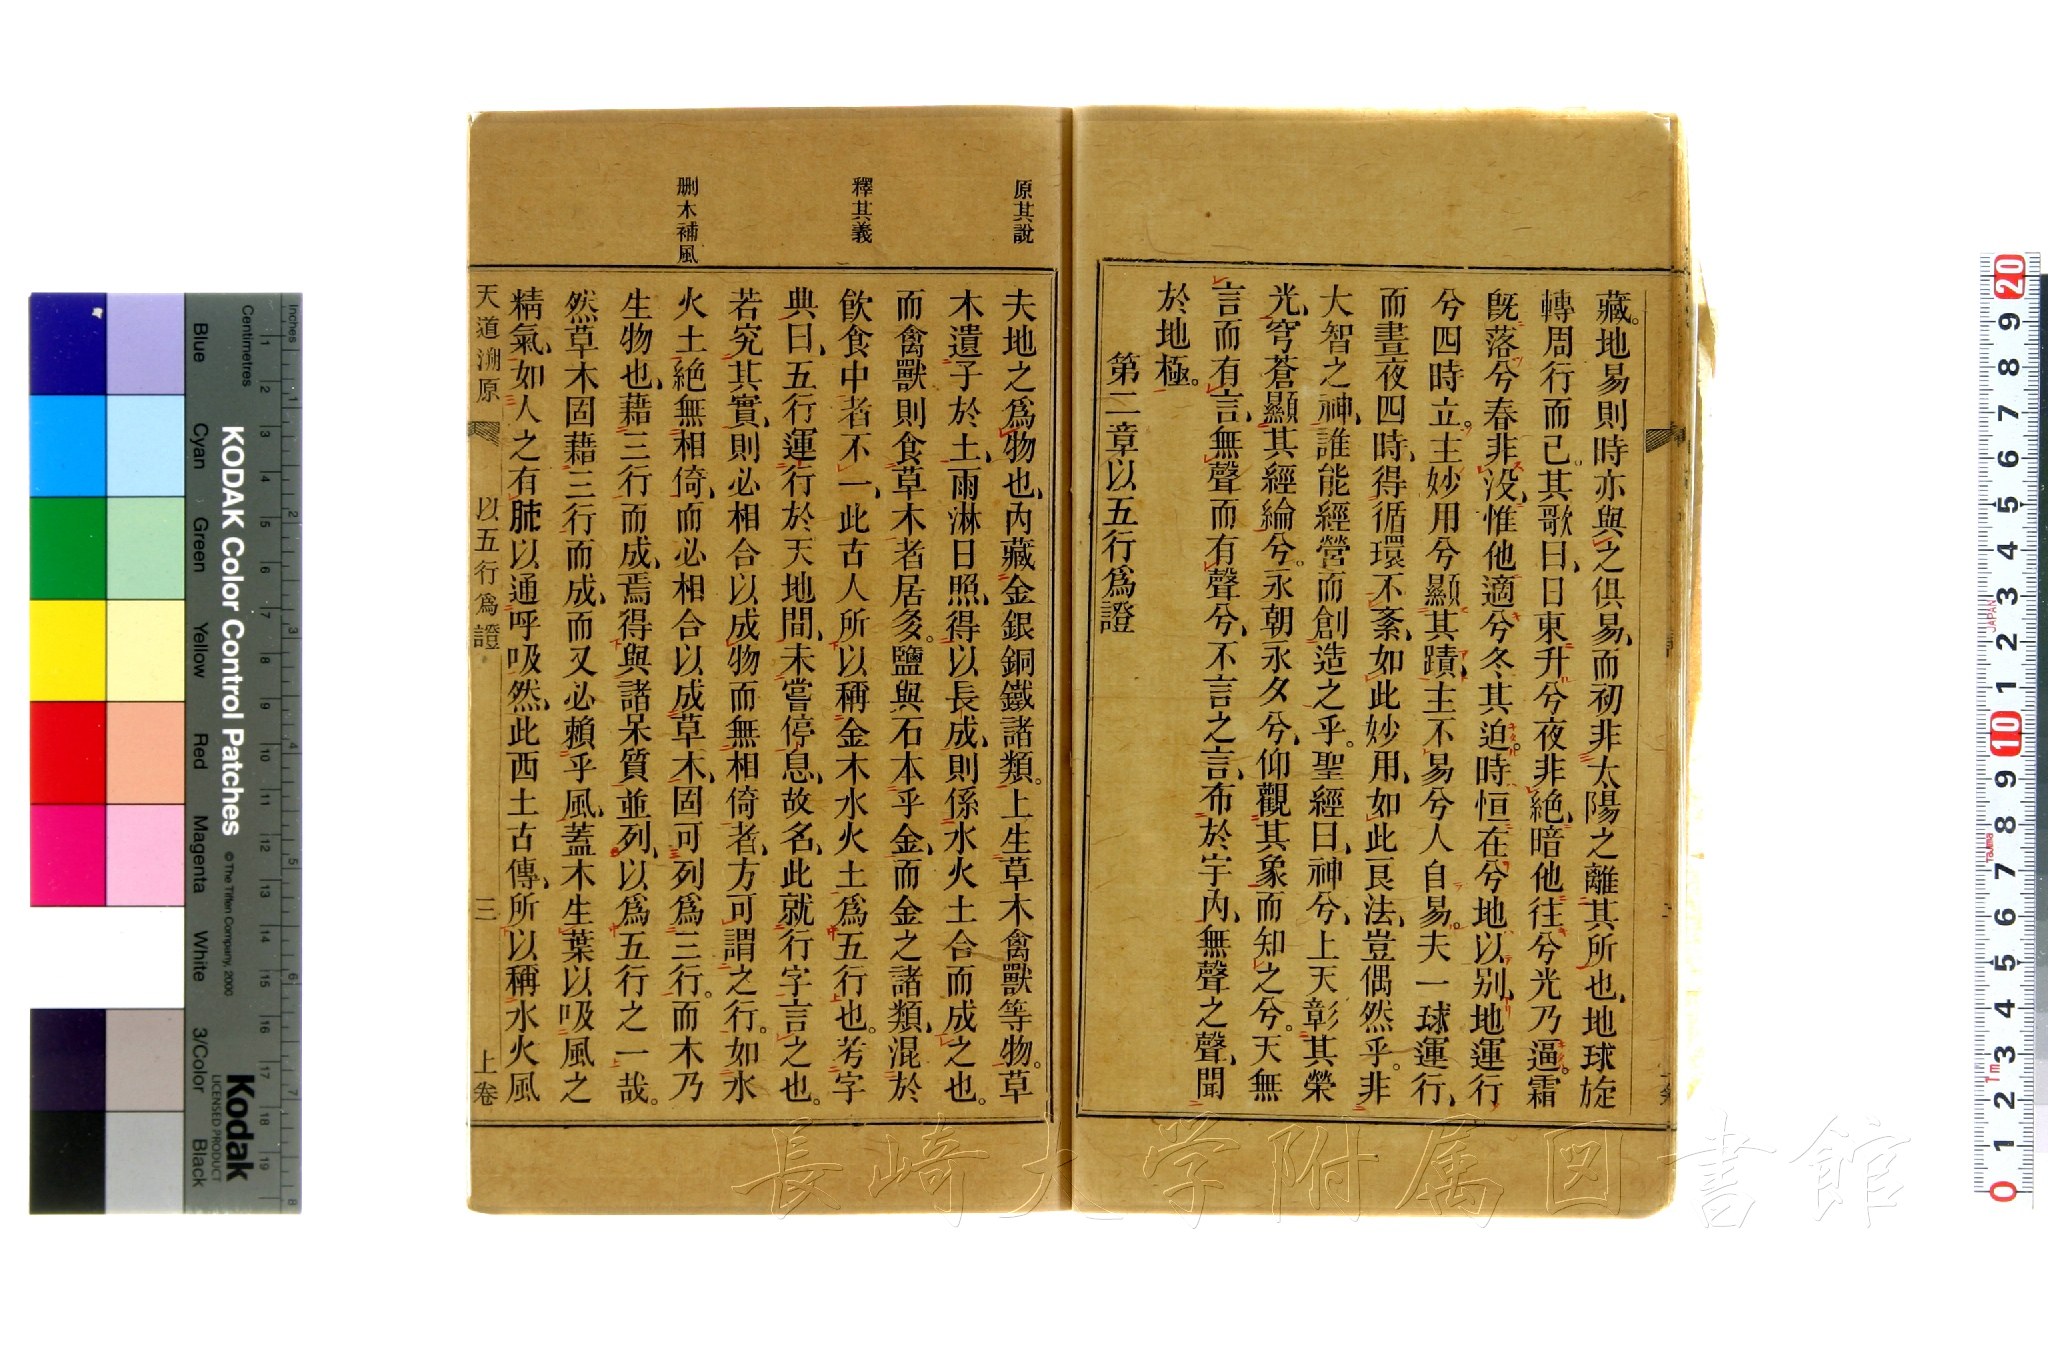 藏。地易則時亦與之俱易、而初非太陽之離其所也、地球旋
轉周行而已。其歌曰、日東升兮夜非絶、暗他往兮光乃逼。霜
旣落兮春非没、惟他適兮冬其迫。時恒在兮地以别、地運行
兮四時立。主妙用兮顯其蹟、主不易兮人自易。夫一球運行、
而晝夜四時、得循環不紊、如此妙用、如此良法、豈偶然乎。非
大智之神、誰能經營而創造之乎。聖經曰、神兮、上天彰其榮
光、穹蒼顯其經綸兮。永朝永夕兮、仰觀其象而知之兮。天無
言而有言、無聲而有聲兮、不言之言、布於宇內、無聲之聲、聞
於地極。
第二章以五行爲證
原其說
釋其義
删木補風
夫地之爲物也、內藏金銀銅鐵諸類。上生草木禽獸等物。草
木遺子於土、雨淋日照、得以長成、則係水火土合而成之也。
而禽獸則食草木者居多。鹽與石本乎金、而金之諸類、混於
飮食中者不一、此古人所以稱金木水火土爲五行也。考字
典曰、五行運行於天地間、未嘗停息、故名、此就行字言之也。
若究其實、則必相合以成物而無相倚者、方可謂之行。如水
火土絶無相倚、而必相合以成草木、固可列爲三行。而木乃
生物也、藉三行而成、焉得與諸呆質並列、以爲五行之一哉。
然草木固藉三行而成、而又必賴乎風、蓋木生葉以吸風之
精氣、如人之有肺以通呼吸然、此西土古傳、所以稱水火風
天道溯原
以五行爲證
三
上卷
KODAK Color Control Patches
© The Tiffen Company, 2000
Kodak
LICENSED PRODUCT
Inches
Centimetres
Blue
Cyan
Green
Yellow
Red
Magenta
White
3/Color
Black
長崎大学附属図書館
JAPAN